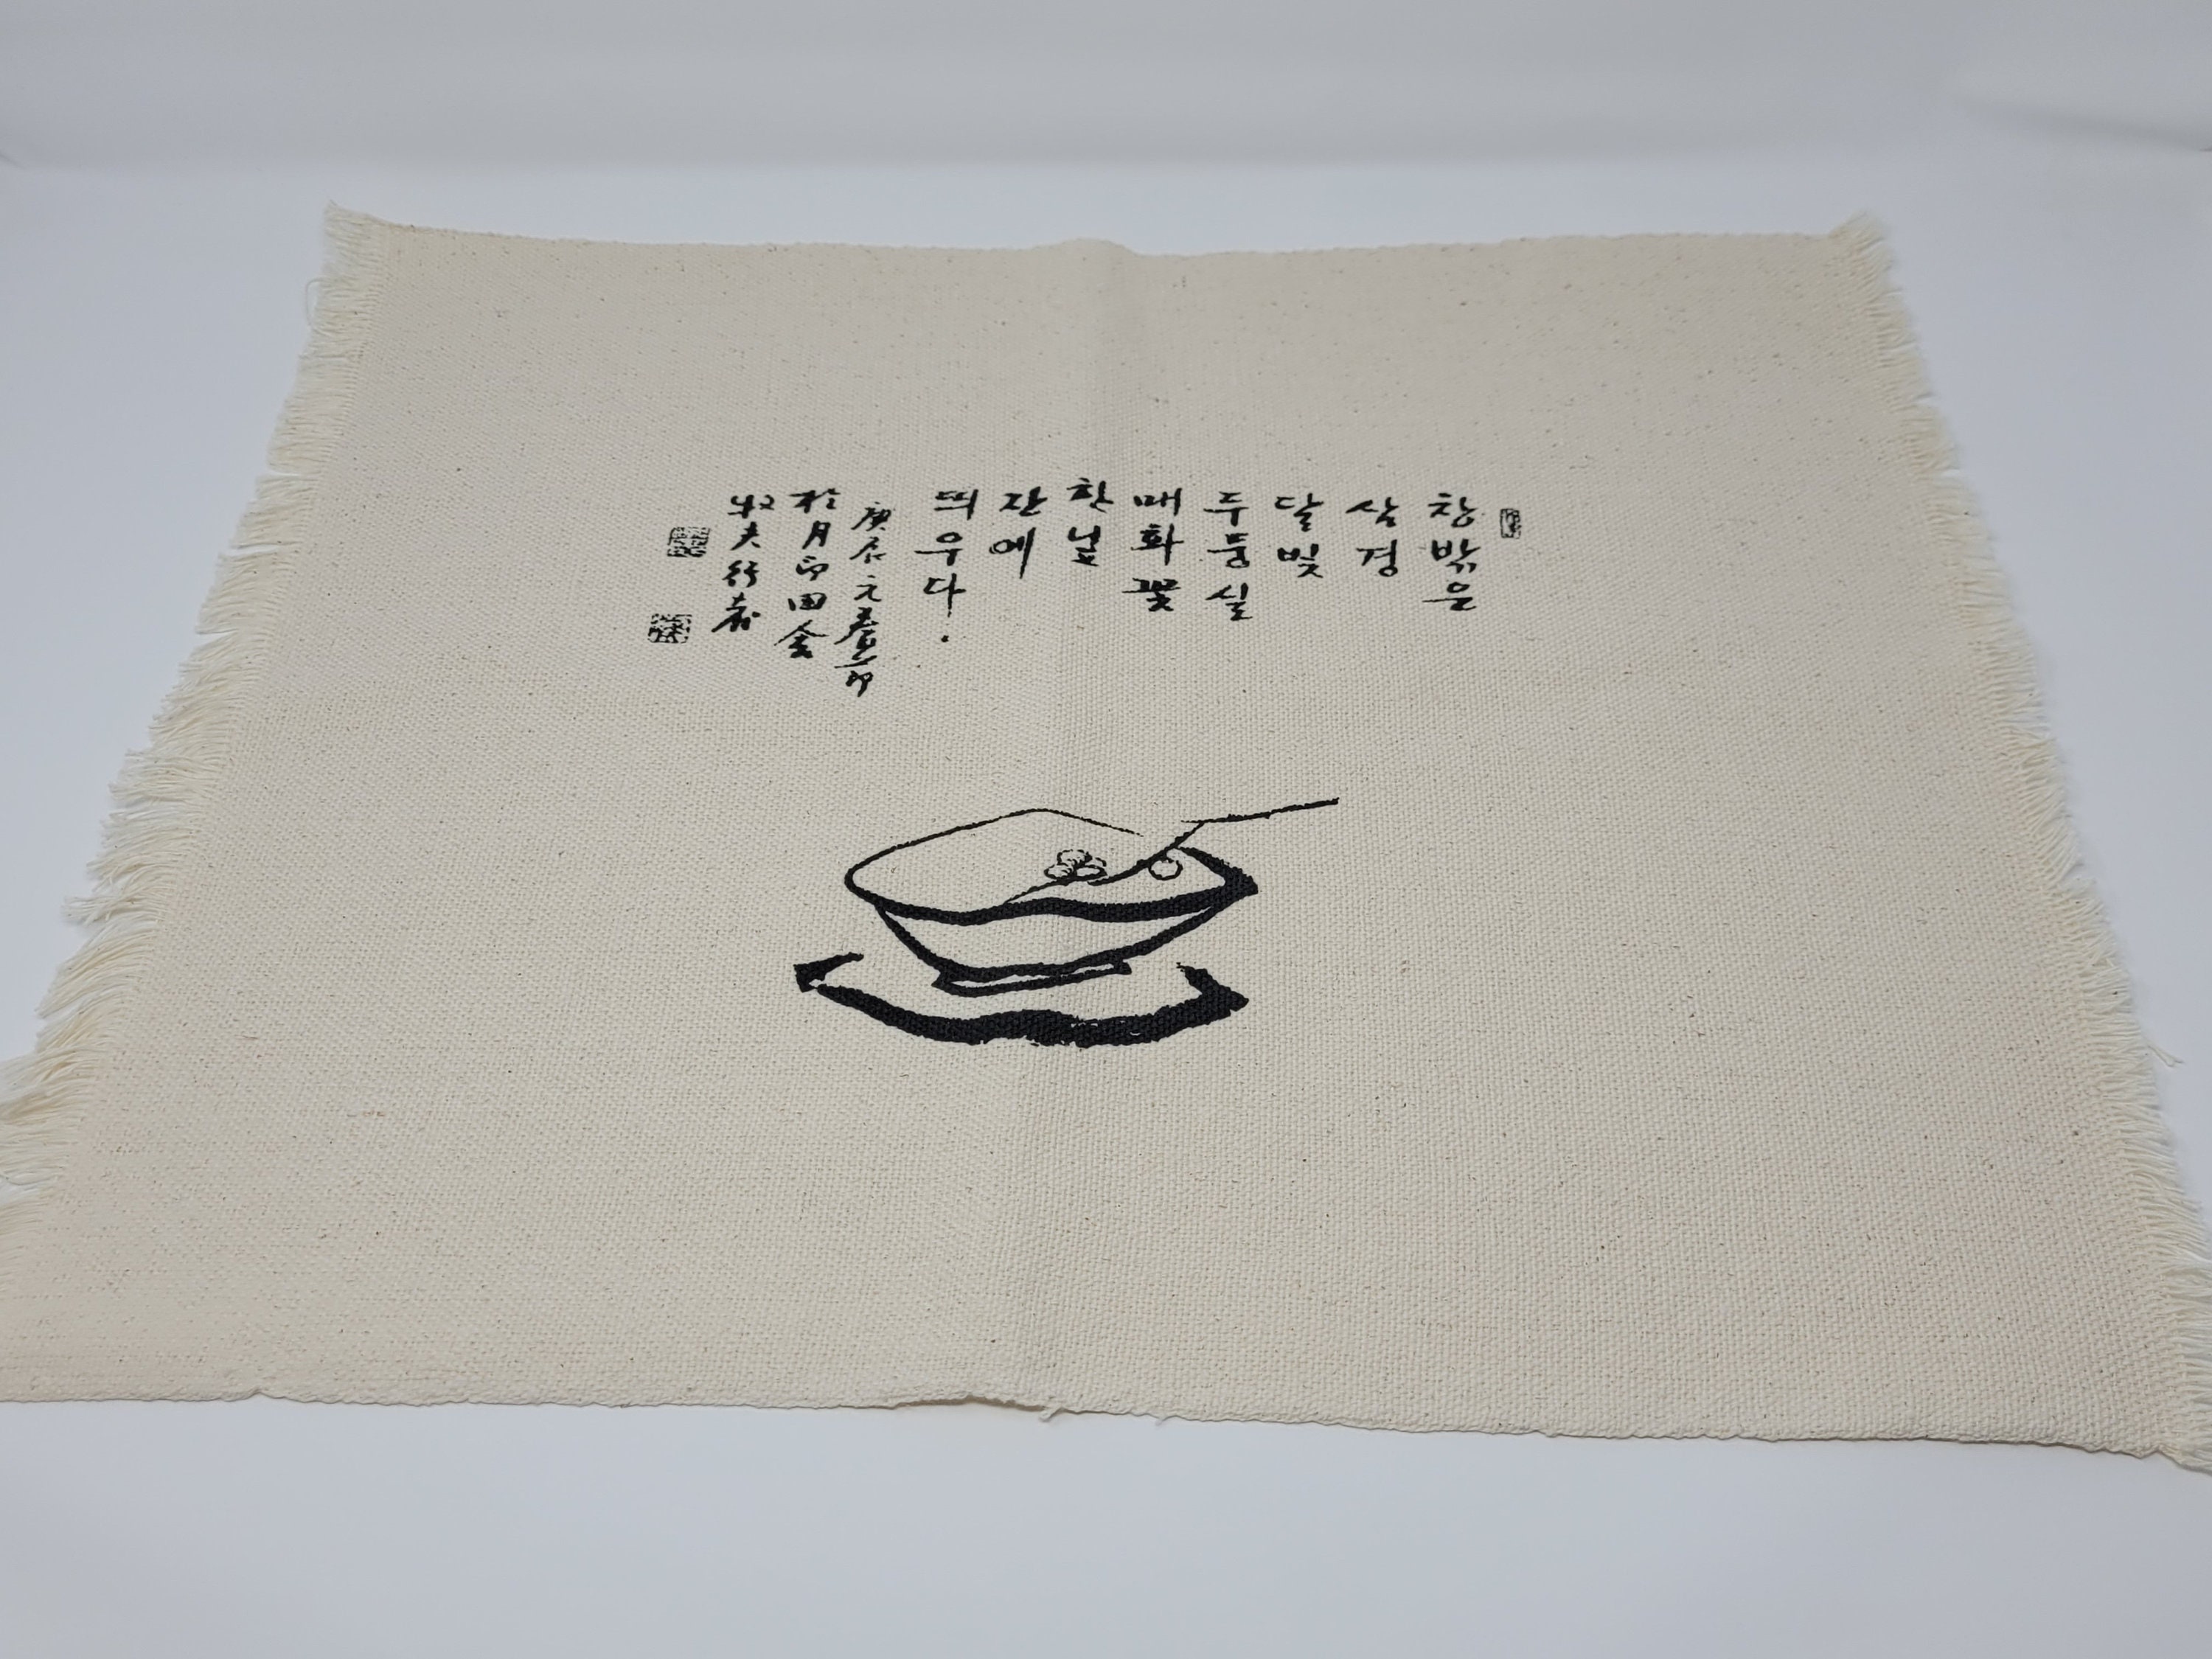 창밖은
삼경
달빛
두둥실
매화꽃
한 닢
잔에
띄우다.
庚辰元春節
於月印田舍
牧夫行者